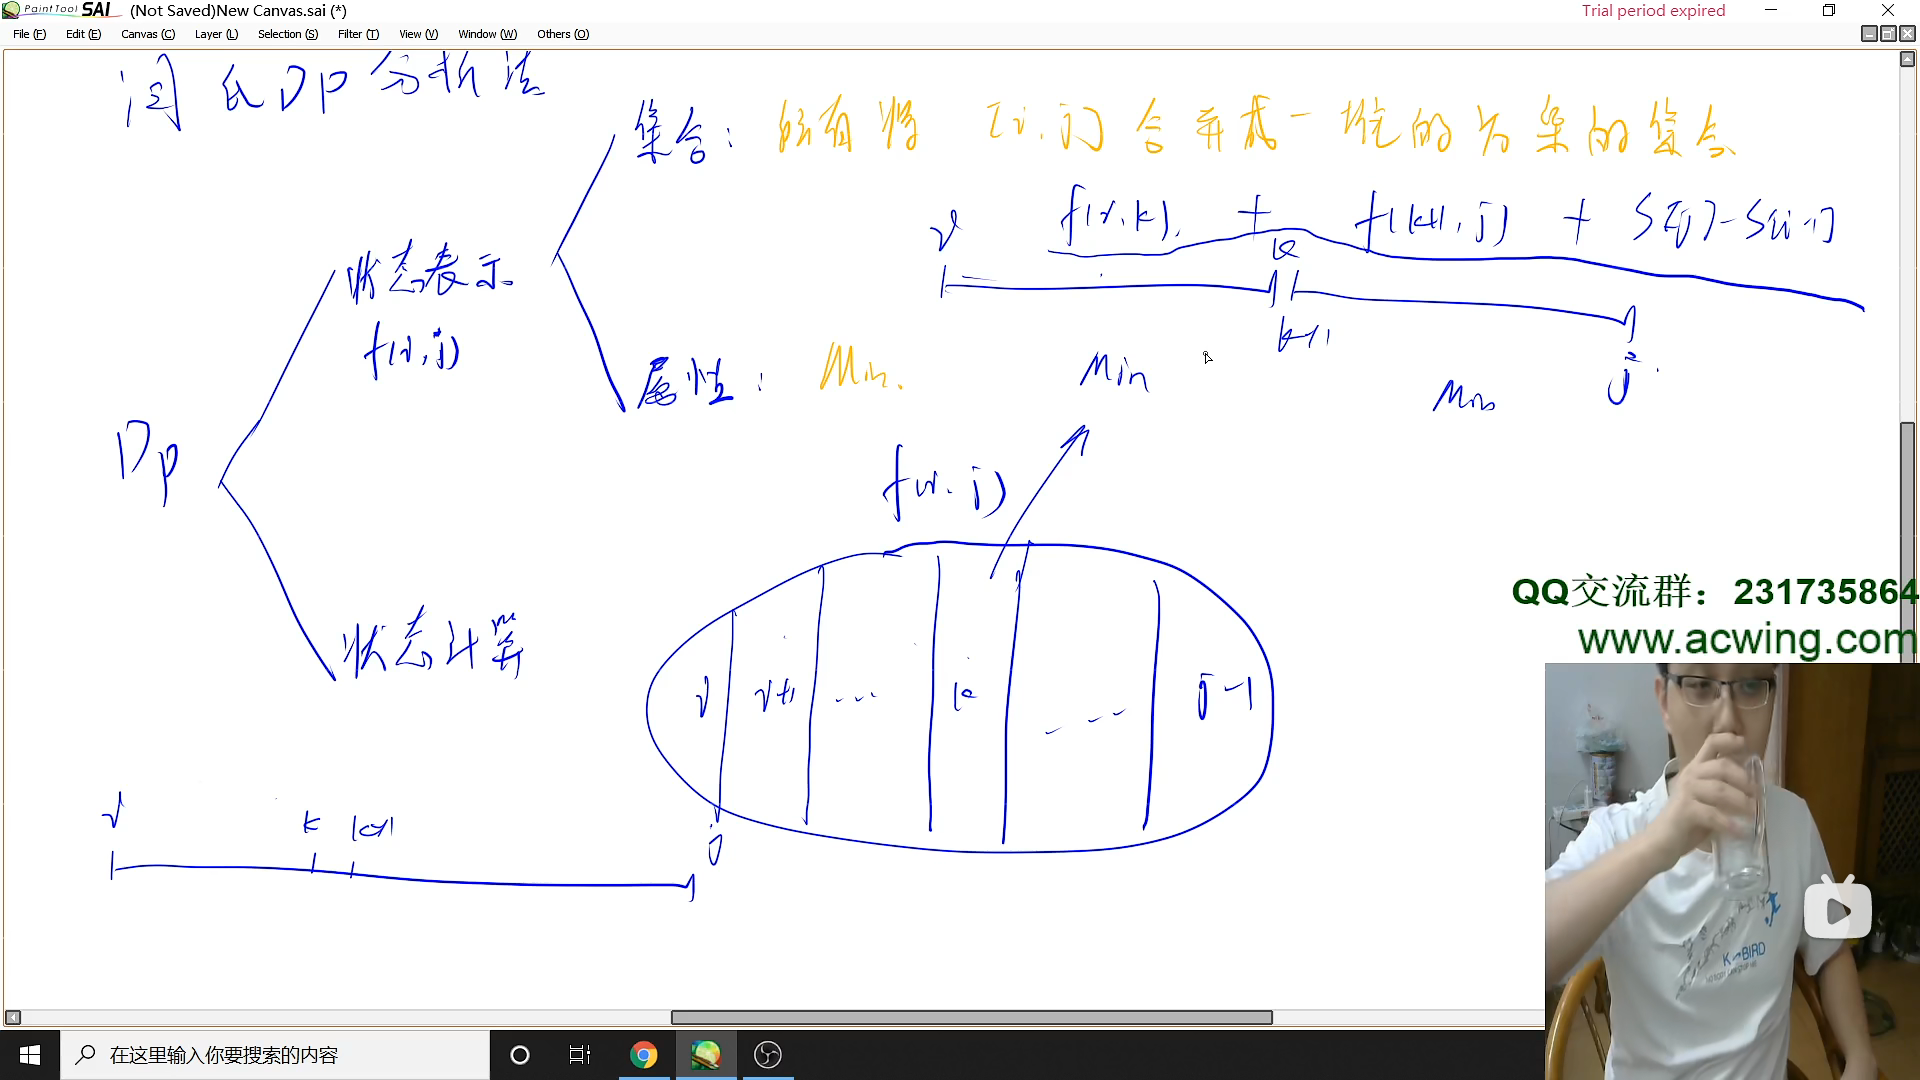 PaintTool SAI (Not Saved)New Canvas.sai (*) Trial period expired
File (F) Edit (E) Canvas (C) Layer (L) Selection (S) Filter (T) View (V) Window (W) Others (O)
闫氏DP分析法
集合: 所有将 [i,j] 合并成一堆的方案的集合
f(i,k) + f(k+1,j) + S[j]-S[i-1]
i k
k+1 j
状态表示
f(i,j)
属性: Min.
Min Min
Dp
f(i,j)
状态计算
i i+1 ... k ... j-1
i k k+1 j
QQ交流群:231735864
www.acwing.com
K BIRD
在这里输入你要搜索的内容